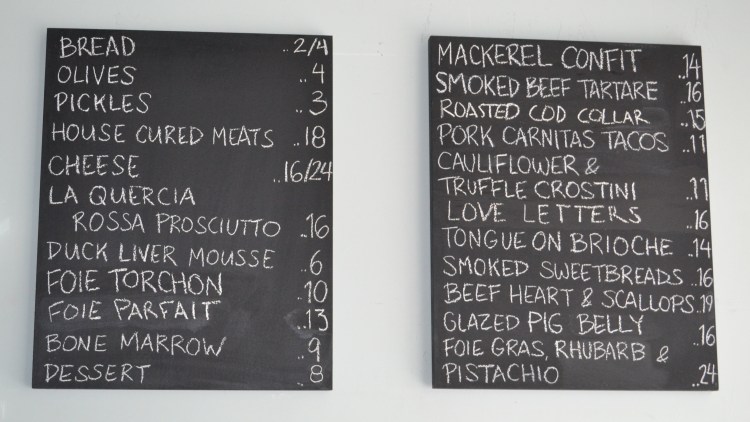 BREAD ..2/4
OLIVES ..4
PICKLES ..3
HOUSE CURED MEATS ..18
CHEESE ..16/24
LA QUERCIA
ROSSA PROSCIUTTO ..16
DUCK LIVER MOUSSE ..6
FOIE TORCHON ..10
FOIE PARFAIT ..13
BONE MARROW ..9
DESSERT ..8
MACKEREL CONFIT ..14
SMOKED BEEF TARTARE ..16
ROASTED COD COLLAR ..15
PORK CARNITAS TACOS ..11
CAULIFLOWER &
TRUFFLE CROSTINI ..11
LOVE LETTERS ..16
TONGUE ON BRIOCHE ..14
SMOKED SWEETBREADS ..16
BEEF HEART & SCALLOPS ..19
GLAZED PIG BELLY ..16
FOIE GRAS, RHUBARB &
PISTACHIO ..24